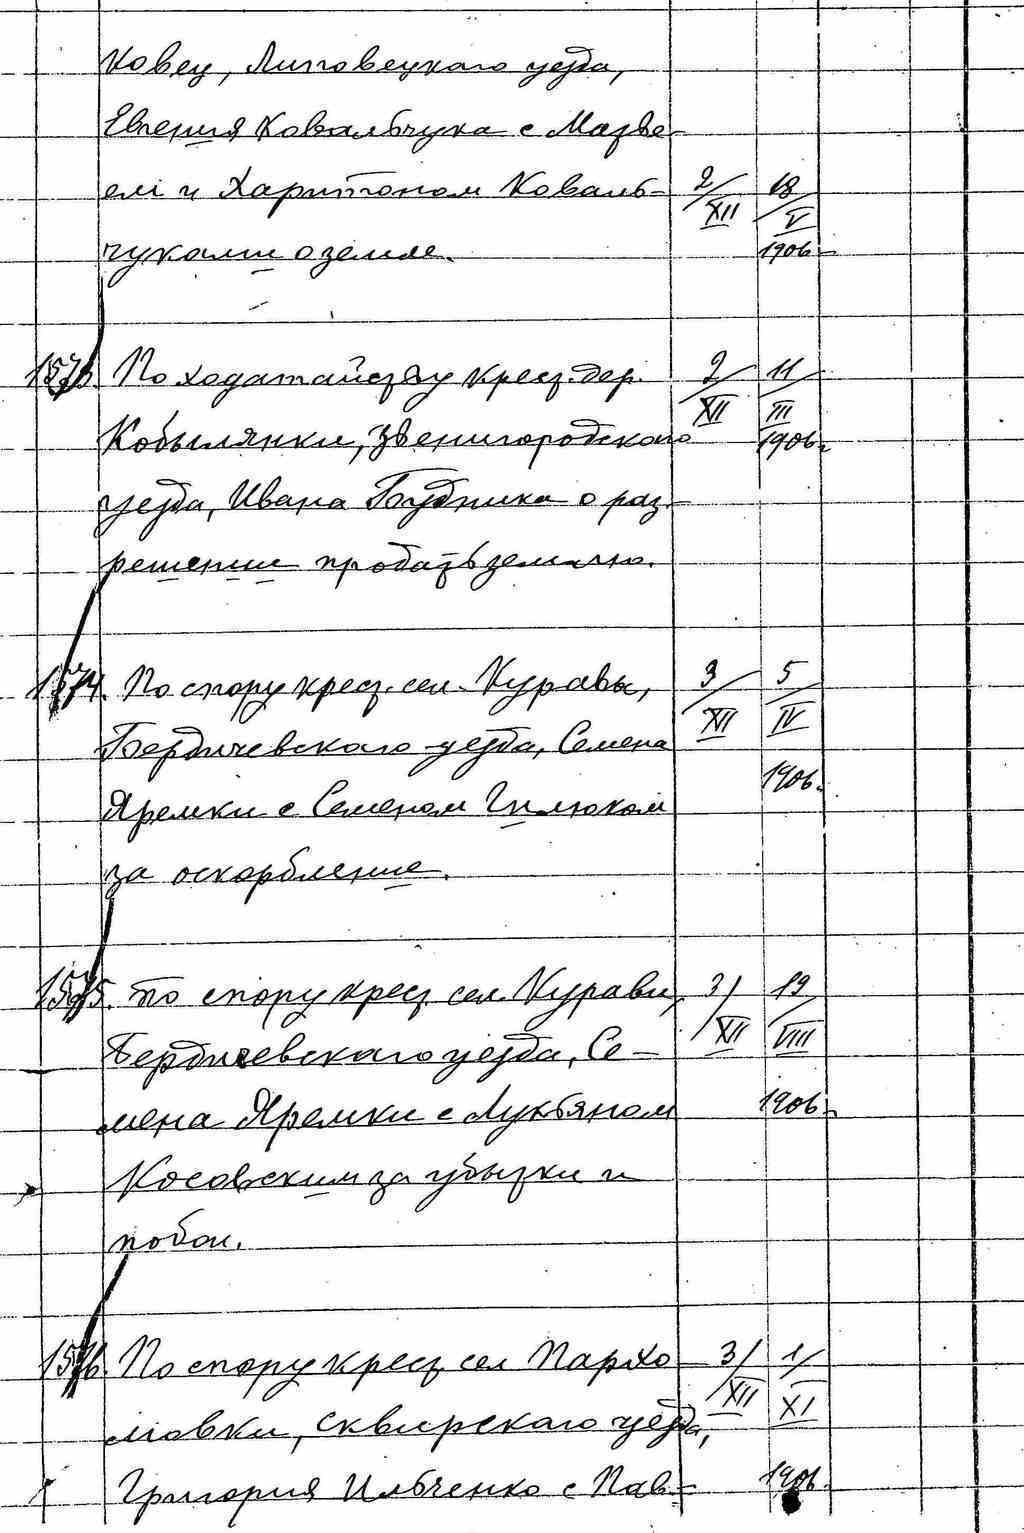 ковец, Липовецкаго уезда,
Евгения Ковальчука с Матве-
ем и Харитоном Коваль- 2/XII 18/V
чуками о земле. 1906
1573. По ходатайству крест. дер. 2/XII 11/III
Кобылянки, Звенигородскаго 1906 г.
уезда, Ивана Будника о раз-
решении продать землю.
1574. По спору крест. сел. Куравы, 3/XII 5/IV
Бердичевскаго уезда, Семена
Яремки с Семеном Гилюком 1906.
за оскорбление.
1575. По спору крест. сел. Куравы, 3/XII 19/VIII
Бердичевскаго уезда, Се-
мена Яремки с Лукьяном 1906
Косовским за убытки и
побои.
1576. По спору крест. сел Пархо- 3/XII 1/XI
мовки, Сквирскаго уезда,
Григория Ильченко с Пав- 1906.